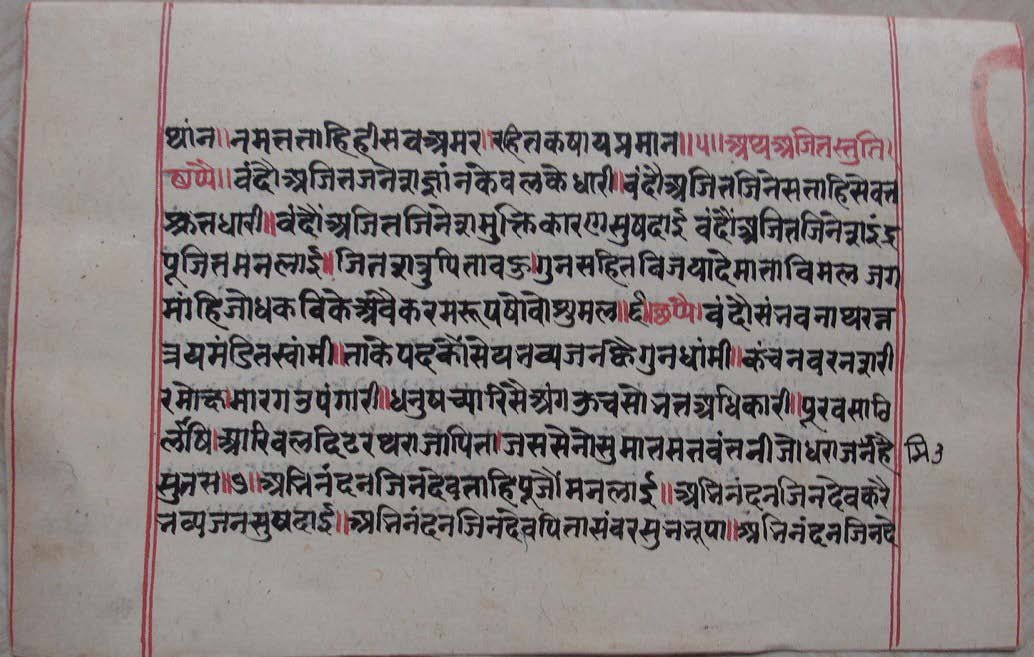 थांन॥ नमत तताहि ही सब अमर॥ रहित कषाय प्रमान॥५॥ अथ अजित स्तुति।
छप्पै॥ वंदौ अजित जनेश ज्ञांन केवल के धारी॥ वंदौ अजित जिनेस ताहि सेवत
वंदौं अजित जिनेश मुक्ति कारण सुषदाई वंदौं अजित जिनेश इंद्र
पूजित मन लाई॥ जित शत्रु पिता गुन सहित विजयादे माता विमल जग
मांहि जोधक विके अवै करम रूप षोवो शुमल॥६॥ छप्पै। वंदौ संभवनाथ रत्न
त्रय मंडित स्वांमी॥ ताके पद कौं सेय भव्यजन व्है गुन धांमी॥ कंचन वरन शरी
र मोक्ष मारग उपंगारी॥ धनुष च्यारिसै अंग ऊच सो भत अधिकारी॥ पूरव साठि
लषि आरिवल दिढरथ राजा पिता। जस सेनो सु मात मतवंतनी जोधराज नहै
सुनस॥७॥ अभिनंदन जिनदेव ताहि पूजौं मन लाई॥ अभिनंदन जिनदेव करै
भव्यजन सुषदाई॥ अभिनंदन जिनदेव पिता संवर सुभ भूपा॥ अभिनंदन जिनदे